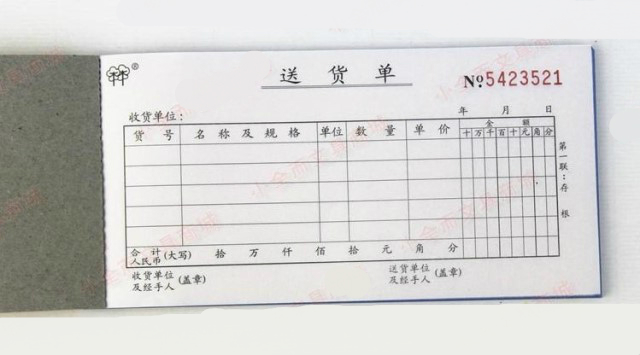 送货单
№ 5423521
收货单位：
年 月 日
货号 名称及规格 单位 数量 单价 金额
十 万 千 百 十 元 角 分
第一联：存根
合计人民币 (大写) 拾 万 仟 佰 拾 元 角 分
收货单位及经手人 (盖章)
送货单位及经手人 (盖章)